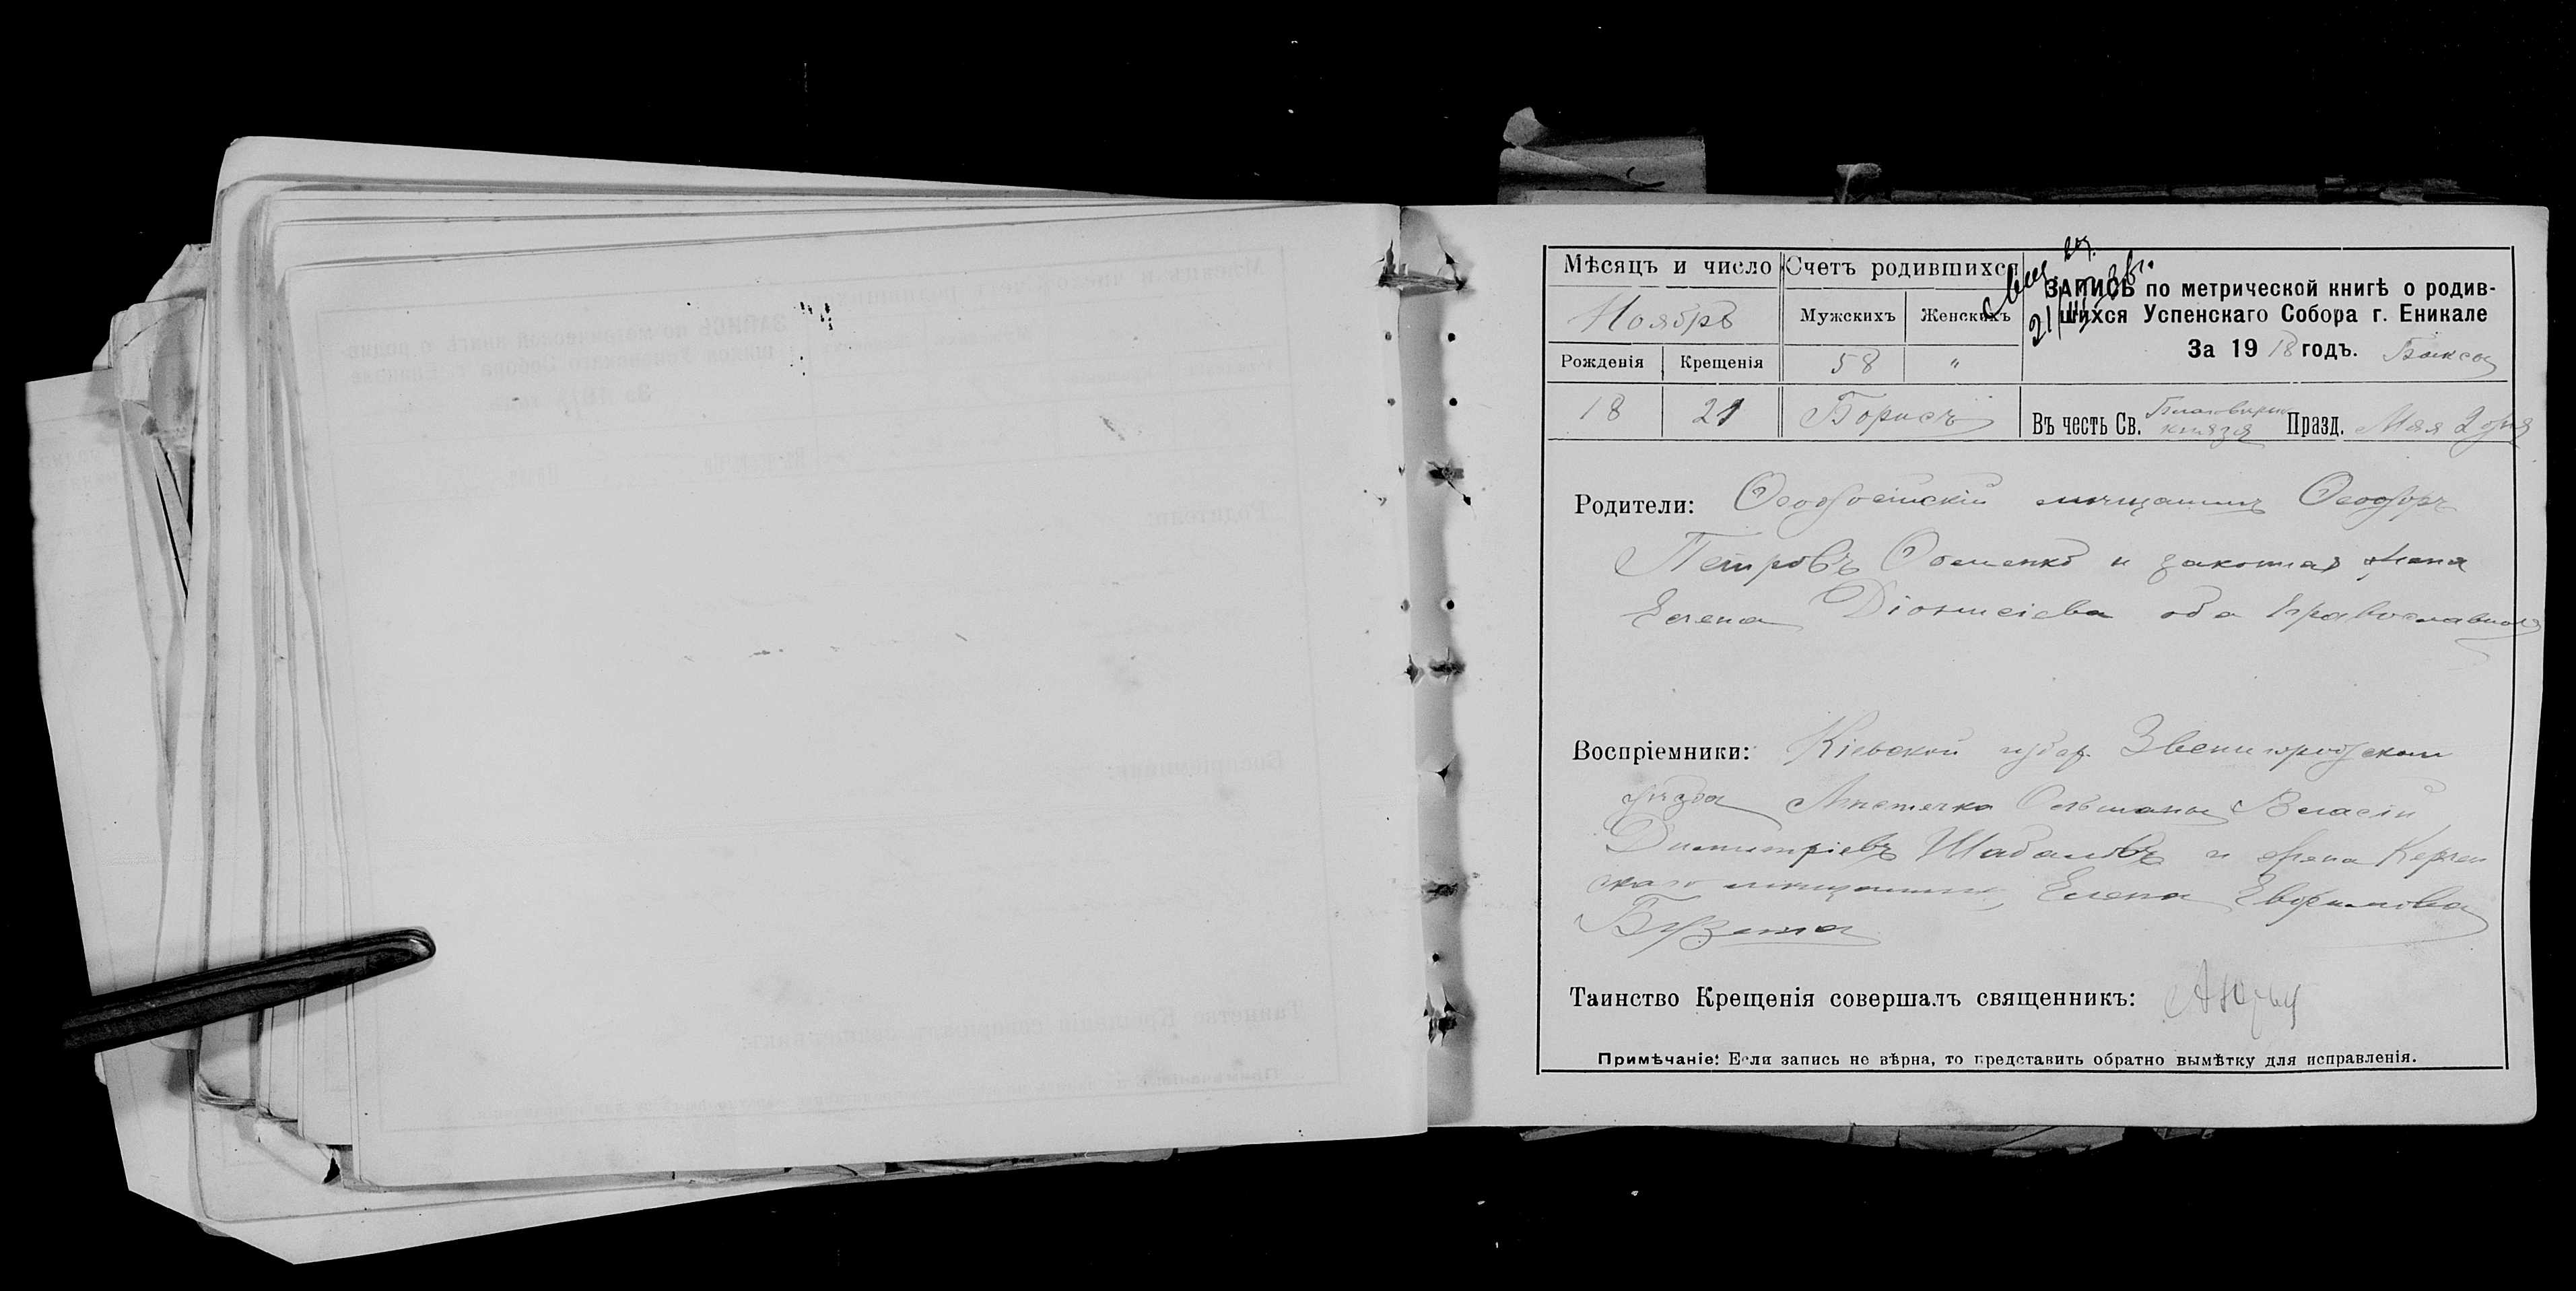 Мѣсяцъ и число
Счетъ родившихся
Ноябрь
Мужскихъ
Женскихъ
Рожденія
Крещенія
58
"
ЗАПИСЬ по метрической книгѣ о родив-
шихся Успенскаго Собора г. Еникале
За 1918 годъ.
18
21
Борисъ
Въ честь Св. князя Празд. Мая 2 дня
Родители: Ѳеодосійскій мѣщанинъ Ѳеодоръ
Петровъ и законная жена
Елена Діонисіева оба православные
Воспріемники: Кіевской губер. Звенигородскаго
уѣзда Мѣстечка Ольшаны Власій
Димитріевъ Шабановъ и жена Керчен
скаго мѣщанина, Елена Евфимова
Таинство Крещенія совершалъ священникъ:
Примѣчаніе: Если запись не вѣрна, то представить обратно вымѣтку для исправленія.